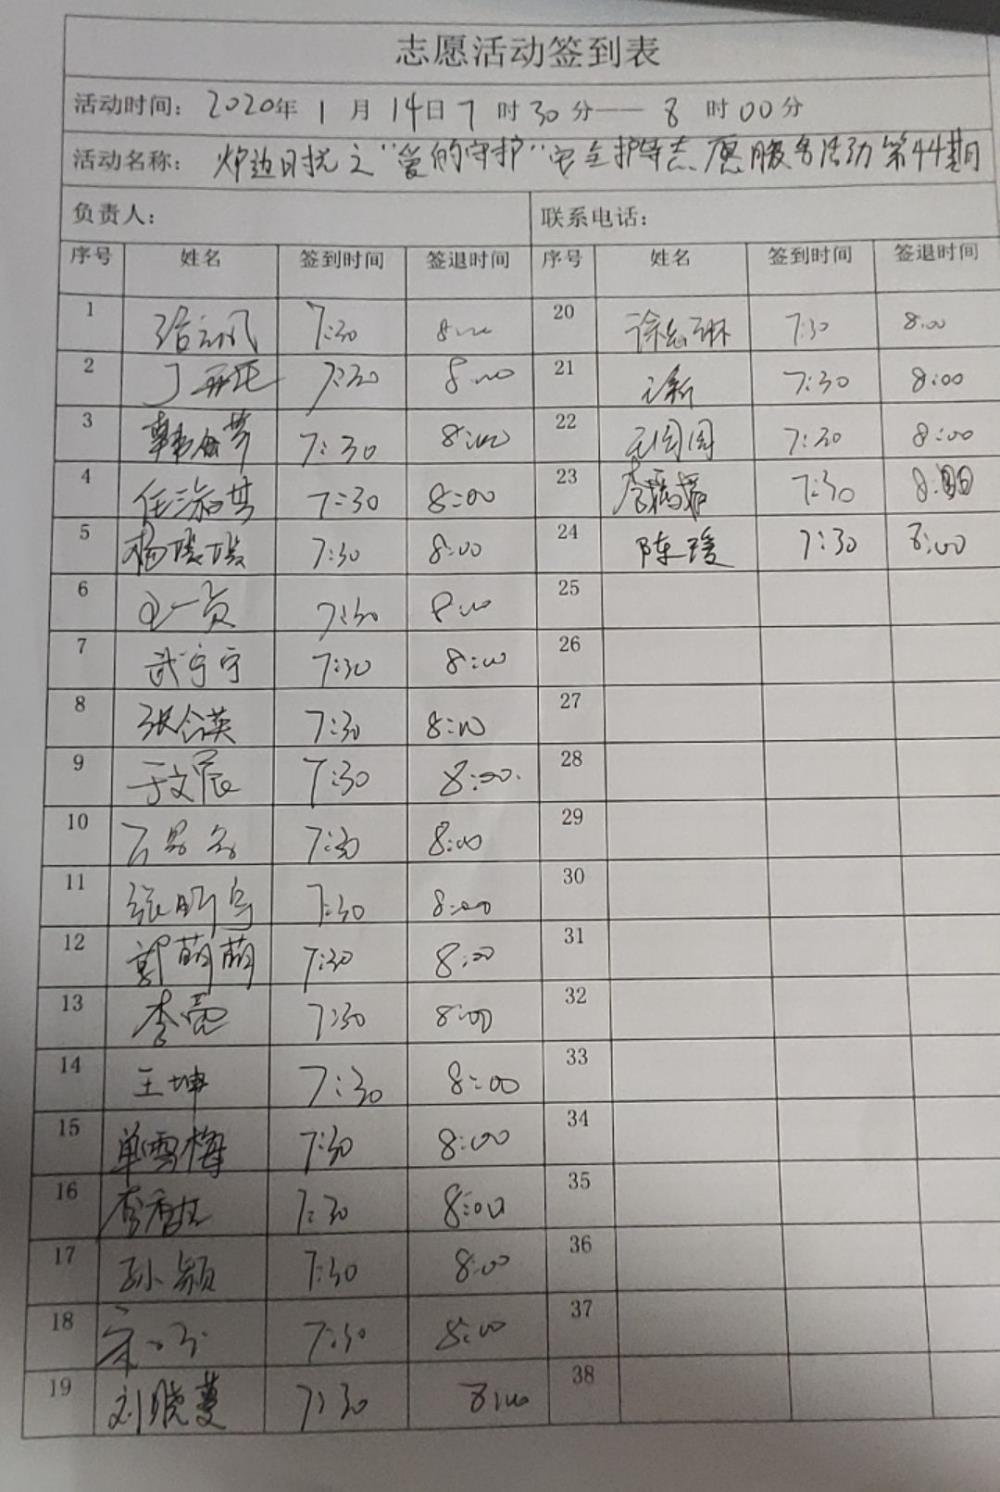 志愿活动签到表
活动时间: 2020年 1 月 14日 7 时 30 分—— 8 时 00 分
活动名称: 之"爱的守护"安全护导志愿服务活动第44期
负责人: 联系电话:
序号 姓名 签到时间 签退时间 序号 姓名 签到时间 签退时间
1 7:30 8:00 20 7:30 8:00
2 7:30 8:00 21 7:30 8:00
3 7:30 8:00 22 7:30 8:00
4 任淑其 7:30 8:00 23 7:30 8:00
5 杨媛媛 7:30 8:00 24 陈瑷 7:30 8:00
6 7:30 8:00 25
7 武宁宁 7:30 8:00 26
8 张会英 7:30 8:00 27
9 于文宸 7:30 8:00 28
10 7:30 8:00 29
11 7:30 8:00 30
12 郭萌萌 7:30 8:00 31
13 李亮 7:30 8:00 32
14 王坤 7:30 8:00 33
15 单雪梅 7:30 8:00 34
16 7:30 8:00 35
17 孙颖 7:30 8:00 36
18 7:30 8:00 37
19 刘晓蔓 7:30 8:00 38